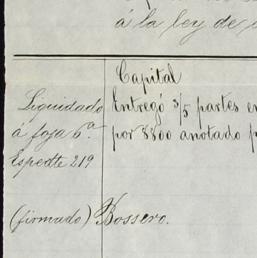 á la ley de
Capital
Liquidado
Entregó 3/5 partes en
á foja 6ª
por 3300 anotado
Espedte 219
(firmado) Bossero.